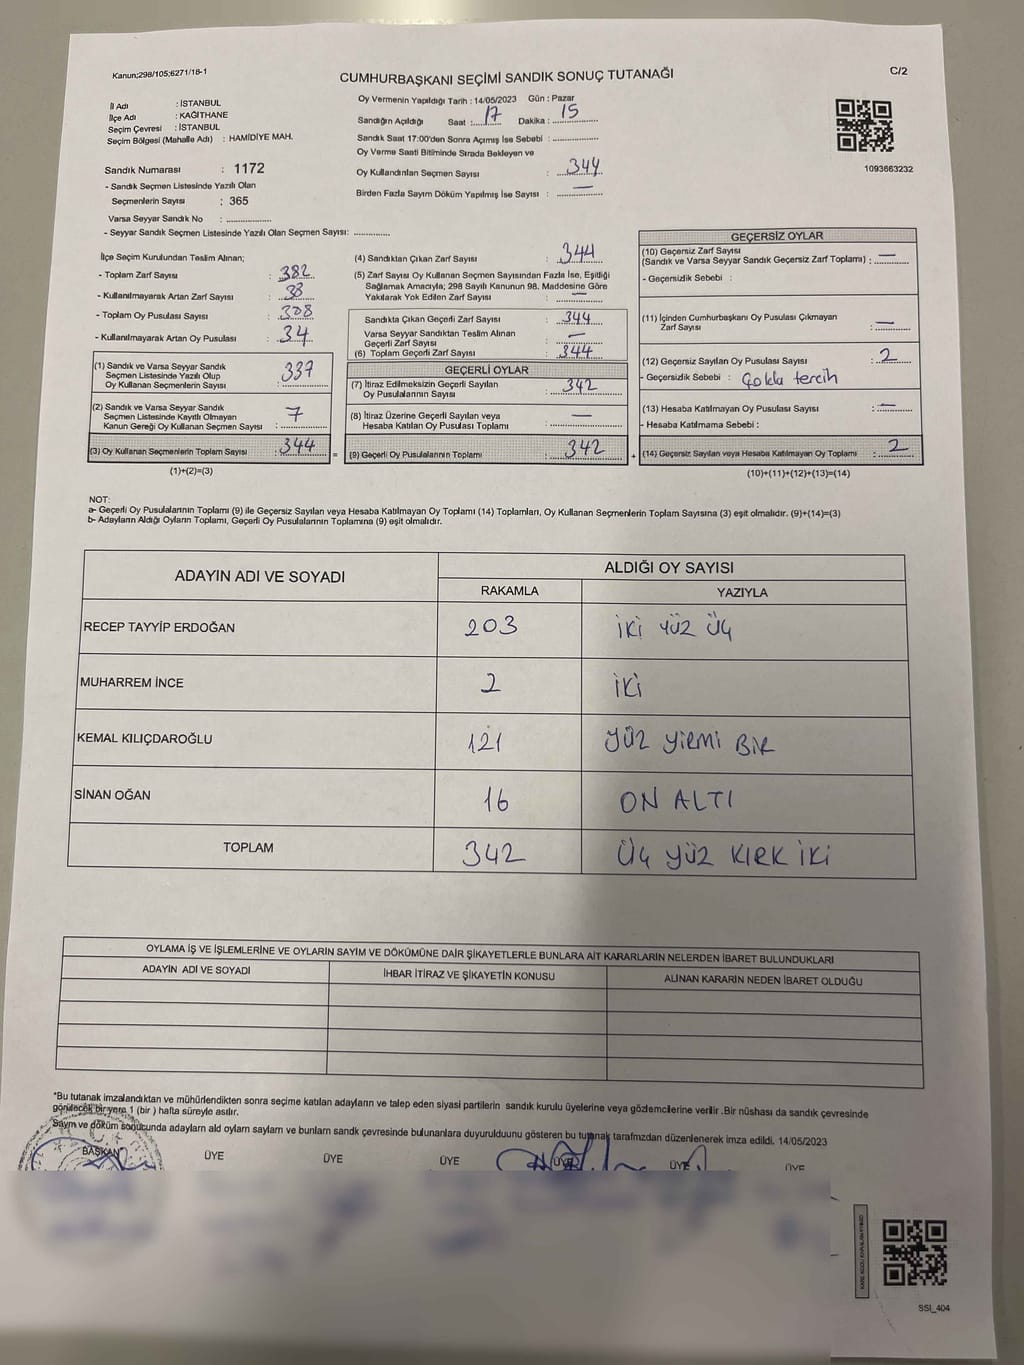 Kanun;298/105;6271/18-1
CUMHURBAŞKANI SEÇİMİ SANDIK SONUÇ TUTANAĞI
C/2
İl Adı : İSTANBUL
İlçe Adı : KAĞITHANE
Seçim Çevresi : İSTANBUL
Seçim Bölgesi (Mahalle Adı) : HAMİDİYE MAH.
Sandık Numarası : 1172
- Sandık Seçmen Listesinde Yazılı Olan
Seçmenlerin Sayısı : 365
Varsa Seyyar Sandık No : ............
- Seyyar Sandık Seçmen Listesinde Yazılı Olan Seçmen Sayısı: ............
Oy Vermenin Yapıldığı Tarih : 14/05/2023 Gün : Pazar
Sandığın Açıldığı Saat : 17 Dakika : 15
Sandık Saat 17:00'den Sonra Açımış İse Sebebi : ............
Oy Verme Saati Bitiminde Sırada Bekleyen ve
Oy Kullandırılan Seçmen Sayısı : 344
Birden Fazla Sayım Döküm Yapılmış İse Sayısı : —
1093663232
İlçe Seçim Kurulundan Teslim Alınan;
- Toplam Zarf Sayısı : 382
- Kullanılmayarak Artan Zarf Sayısı : 38
- Toplam Oy Pusulası Sayısı :
- Kullanılmayarak Artan Oy Pusulası : 34
(1) Sandık ve Varsa Seyyar Sandık
Seçmen Listesinde Yazılı Olup
Oy Kullanan Seçmenlerin Sayısı : 337
(2) Sandık ve Varsa Seyyar Sandık
Seçmen Listesinde Kayıtlı Olmayan
Kanun Gereği Oy Kullanan Seçmen Sayısı : 7
(3) Oy Kullanan Seçmenlerin Toplam Sayısı : 344
(1)+(2)=(3)
(4) Sandıktan Çıkan Zarf Sayısı : 344
(5) Zarf Sayısı Oy Kullanan Seçmen Sayısından Fazla İse, Eşitliği
Sağlamak Amacıyla; 298 Sayılı Kanunun 98. Maddesine Göre
Yakılarak Yok Edilen Zarf Sayısı : —
Sandıkta Çıkan Geçerli Zarf Sayısı : 344
Varsa Seyyar Sandıktan Teslim Alınan
Geçerli Zarf Sayısı : —
(6) Toplam Geçerli Zarf Sayısı : 344
GEÇERLİ OYLAR
(7) İtiraz Edilmeksizin Geçerli Sayılan
Oy Pusulalarının Sayısı : 342
(8) İtiraz Üzerine Geçerli Sayılan veya
Hesaba Katılan Oy Pusulası Toplamı : —
= (9) Geçerli Oy Pusulalarının Toplamı : 342
GEÇERSİZ OYLAR
(10) Geçersiz Zarf Sayısı
(Sandık ve Varsa Seyyar Sandık Geçersiz Zarf Toplamı) : —
- Geçersizlik Sebebi :
(11) İçinden Cumhurbaşkanı Oy Pusulası Çıkmayan
Zarf Sayısı : —
(12) Geçersiz Sayılan Oy Pusulası Sayısı : 2
- Geçersizlik Sebebi : Çoklu tercih
(13) Hesaba Katılmayan Oy Pusulası Sayısı : —
- Hesaba Katılmama Sebebi :
+ (14) Geçersiz Sayılan veya Hesaba Katılmayan Oy Toplamı : 2
(10)+(11)+(12)+(13)=(14)
NOT:
a- Geçerli Oy Pusulalarının Toplamı (9) ile Geçersiz Sayılan veya Hesaba Katılmayan Oy Toplamı (14) Toplamları, Oy Kullanan Seçmenlerin Toplam Sayısına (3) eşit olmalıdır. (9)+(14)=(3)
b- Adayların Aldığı Oyların Toplamı, Geçerli Oy Pusulalarının Toplamına (9) eşit olmalıdır.
ADAYIN ADI VE SOYADI ALDIĞI OY SAYISI
RAKAMLA YAZIYLA
RECEP TAYYİP ERDOĞAN 203 İKİ YÜZ ÜÇ
MUHARREM İNCE 2 İKİ
KEMAL KILIÇDAROĞLU 121 YÜZ YİRMİ BİR
SİNAN OĞAN 16 ON ALTI
TOPLAM 342 ÜÇ YÜZ KIRK İKİ
OYLAMA İŞ VE İŞLEMLERİNE VE OYLARIN SAYIM VE DÖKÜMÜNE DAİR ŞİKAYETLERLE BUNLARA AİT KARARLARIN NELERDEN İBARET BULUNDUKLARI
ADAYIN ADİ VE SOYADI İHBAR İTİRAZ VE ŞİKAYETİN KONUSU ALINAN KARARIN NEDEN İBARET OLDUĞU
*Bu tutanak imzalandıktan ve mühürlendikten sonra seçime katılan adayların ve talep eden siyasi partilerin sandık kurulu üyelerine veya gözlemcilerine verilir .Bir nüshası da sandık çevresinde
görülecek bir yere 1 (bir ) hafta süreyle asılır.
Sayım ve döküm sonucunda adayların ald oyların sayıların ve bunların sandk çevresinde bulunanlara duyurulduunu gösteren bu tutanak tarafmzdan düzenlenerek imza edildi. 14/05/2023
BAŞKAN ÜYE ÜYE ÜYE ÜYE ÜYE ÜYE
SSİ_404